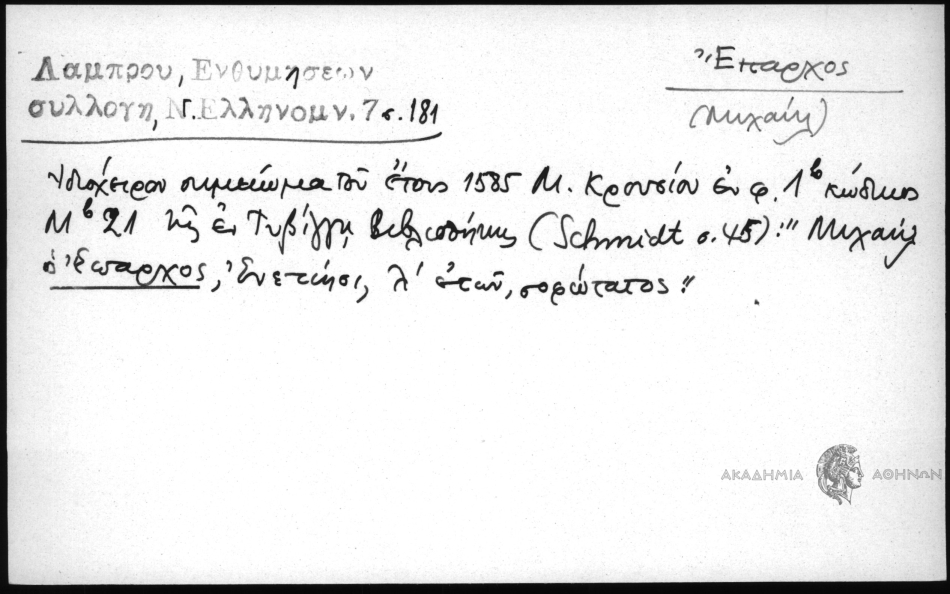 Λαμπρου, Ενθυμησεων
συλλογη, Ν.Ελληνομν. 7 σ. 181
Ἔπαρχος
(Μιχαήλ)
Ἰδιόχειρον σημείωμα τοῦ ἔτους 1585 Μ. Κρουσίου ἐν φ. 1β κώδικος
Μβ 21 τῆς ἐν Τυβίγγῃ Βιβλιοθήκης (Schmidt σ. 45): "Μιχαήλ
ὁ Ἔπαρχος, Ἐνετίησι, λ' ἐτῶν, σοφώτατος"
ΑΚΑΔΗΜΙΑ ΑΘΗΝΩΝ